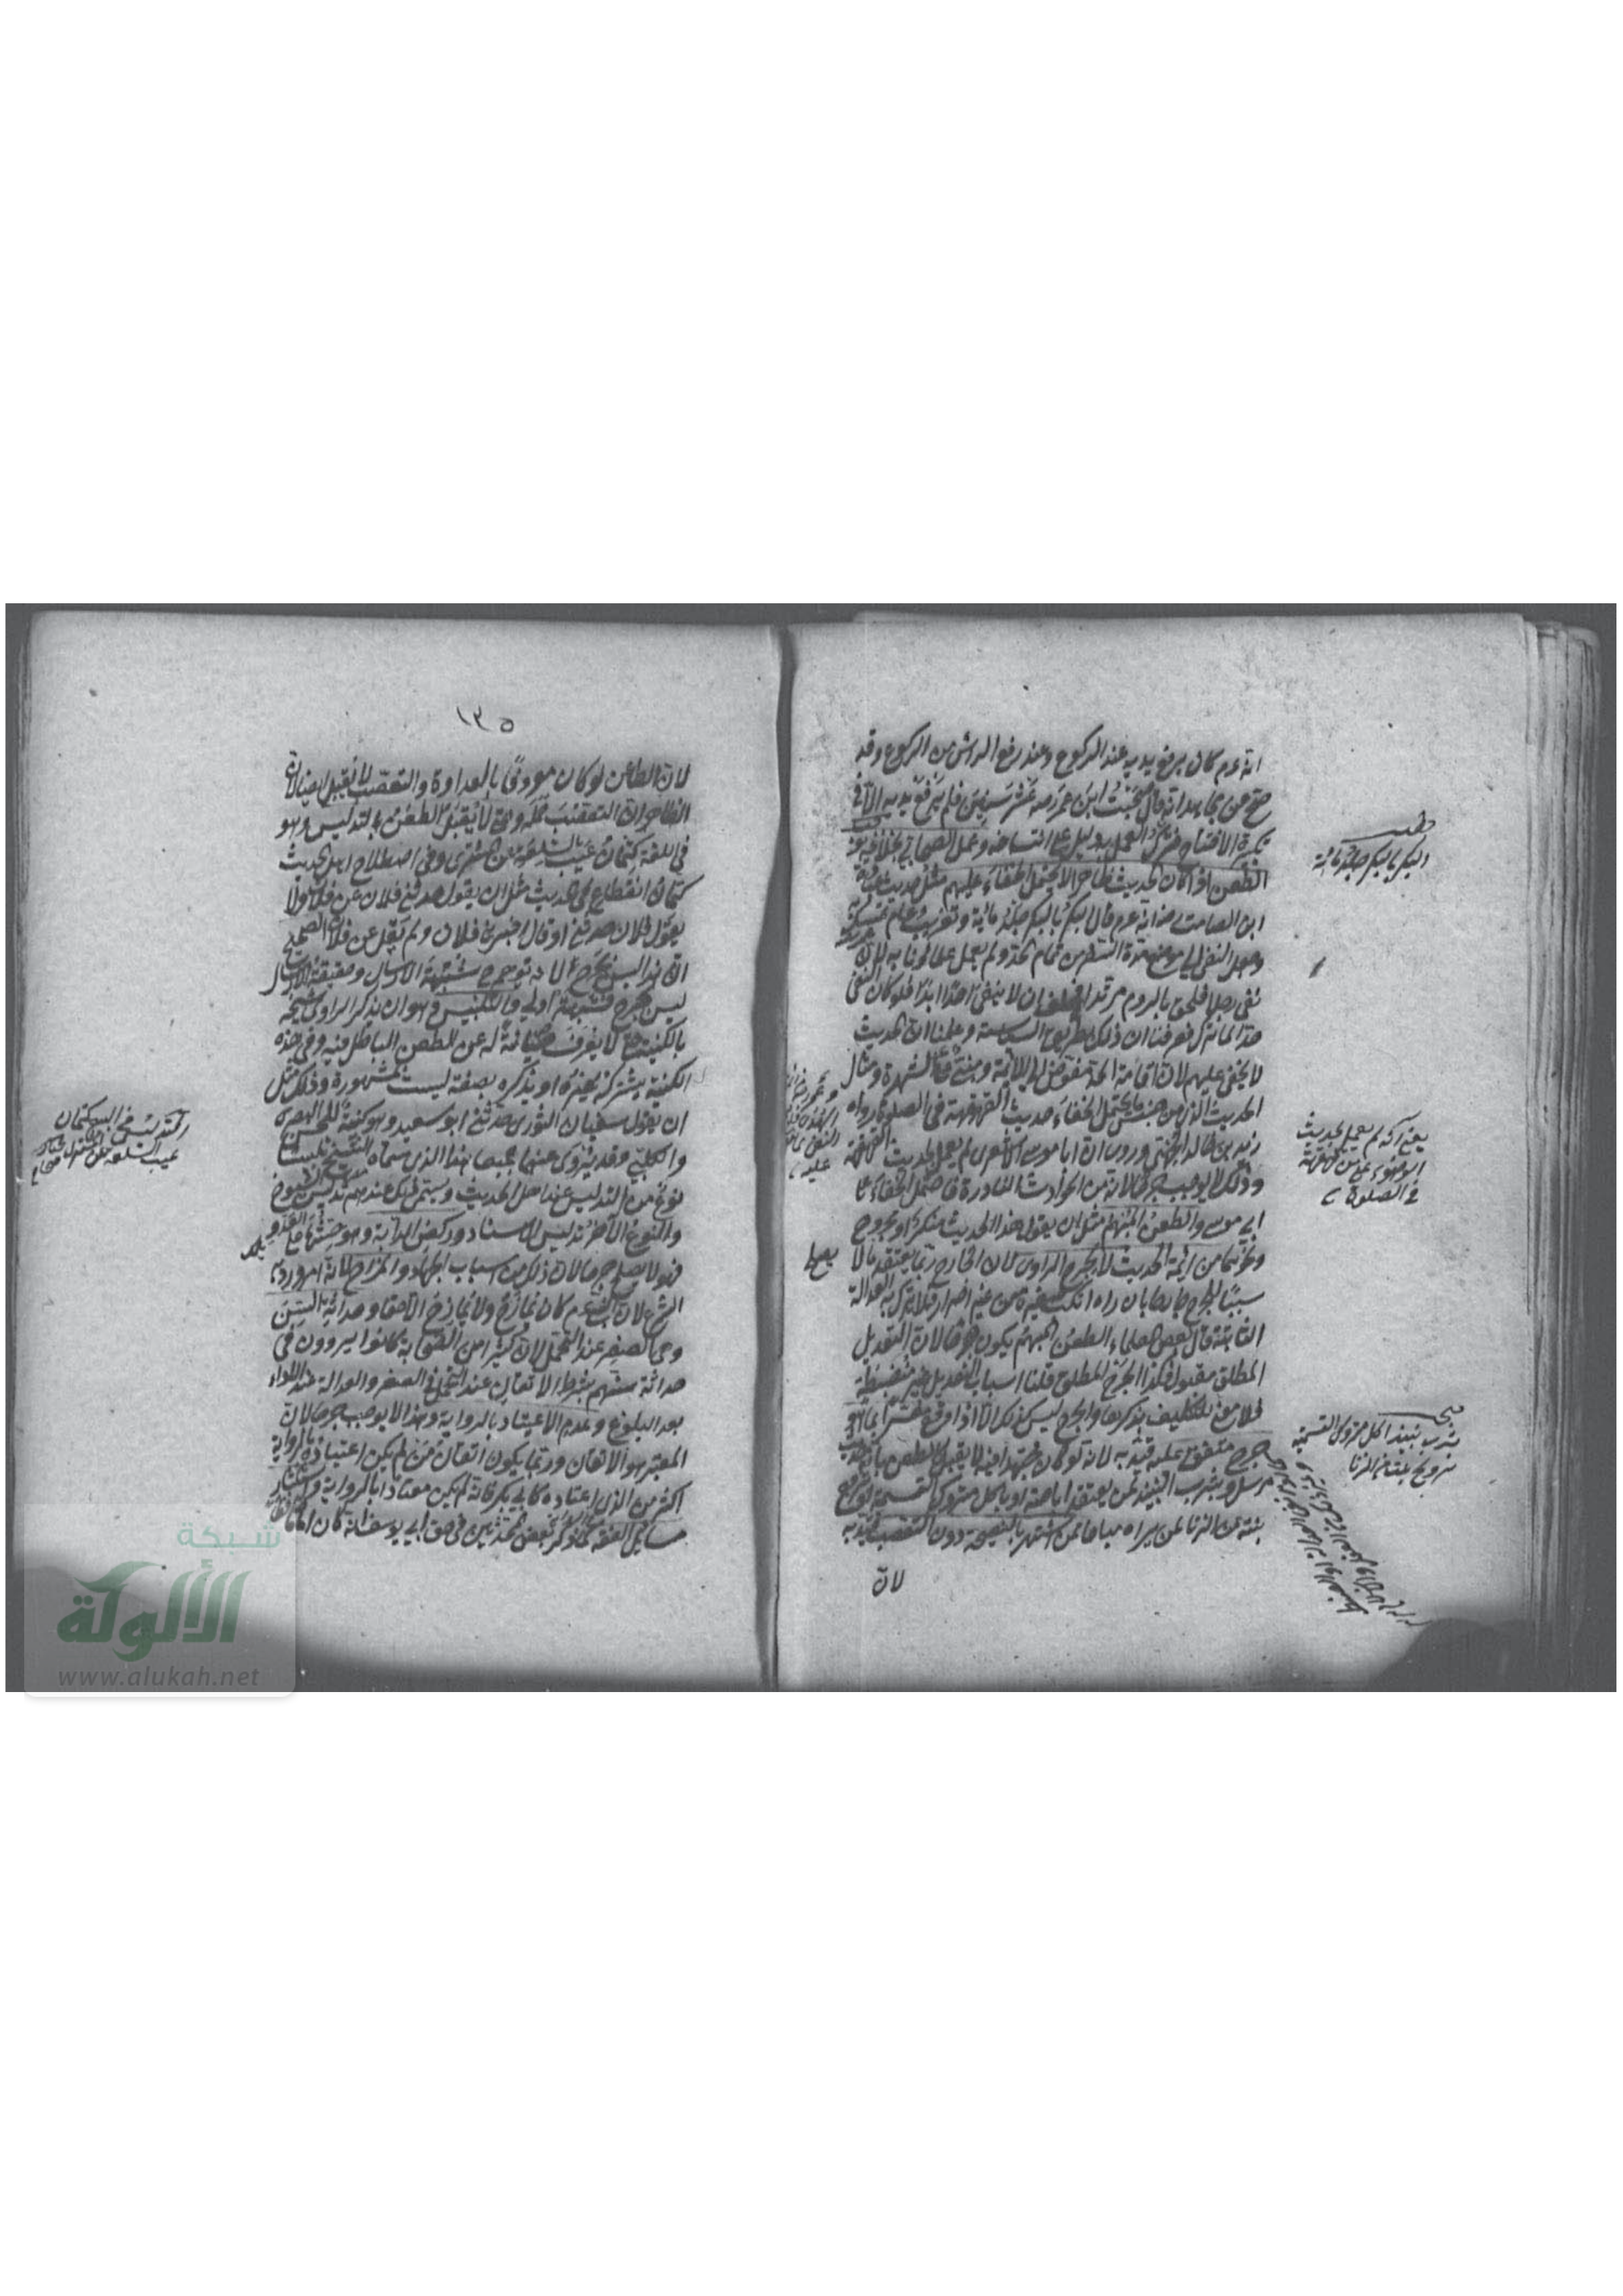 انه عم كان يرفع يديه عند الركوع وعند رفع الرأس من الركوع وقد
صح عن مجاهد انه قال صحبت ابن عمر رضه عشر سنين فلم يرفع يديه الا في
تكبيرة الافتتاح فترك العمل به دليل على انتساخه وعمل الصحابي بخلافه يوجب
الطعن اذا كان الحديث ظاهرا لا يحتمل الخفاء عليهم مثل حديث عبادة
ابن الصامت رضه انه عم قال البكر بالبكر جلد مائة وتغريب عام
وجعل النفي الى موضع مدة السفر من تمام الحد ولم يعمل علماؤنا به لان
نفى رجلا فلحق بالروم مرتدا فحلف ان لا ينفي احدا ابدا فلو كان النفي
حدا لما ترك فعرفنا ان ذلك بطريق السياسة وعلمنا ان الحديث
لا يخفى عليهم لان اقامة الحد مفوض الى الائمة ومبني على الشهرة ومثال
الحديث الذي من جنس ما يحتمل الخفاء حديث القهقهة في الصلوة رواه
زيد بن خالد الجهني وروى ان ابا موسى الاشعري لم يعمل بحديث القهقهة
وذلك لا يوجب جرحا لانه من الحوادث النادرة فاحتمل الخفاء على
ابي موسى والطعن المبهم مثل ان يقول هذا الحديث منكر او مجروح
ونحوهما من ائمة الحديث لا يجرح الراوي لان الجارح ربما يعتقد ما لا
سببا للجرح جارحا بان راه ارتكب صغيرة من غير اصرار فلا يترك به العدالة
الثابتة قال بعض العلماء الطعن المبهم يكون جرحا لان التعديل
المطلق مقبول فكذا الجرح المطلق قلنا اسباب التعديل غير منضبطة
فلا معنى للتكليف بذكرها والجرح ليس كذلك الا اذا وقع مفسرا بما هو
جرح متفق عليه قيد به لانه لو كان مجتهدا فيه لا يقبل كالطعن بان الحديث
مرسل وبشرب النبيذ لمن يعتقد اباحته او باكل متروك التسمية
بنته من الزنا ممن يراه مباحا ممن اشتهر بالنصيحة دون التعصب قيد به
لان
البكر بالبكر جلد مائة
يعني انه لم يعمل بحديث
الوضوء على من قهقهة
في الصلوة
يصلح
شرب نبيذ اكل متروك التسمية
تزويج بنت من الزنا
١٣٥
لان الطاعن لو كان موصوفا بالعداوة والتعصب لا يقبل ايضا لان
الظاهر ان التعصب حمله وحتى لا يقبل الطعن بالتدليس وهو
في اللغة كتمان عيب السلعة عن المشتري وفي اصطلاح اهل الحديث
كتمان انقطاع في الحديث مثل ان يقول حدثني فلان عن فلان ولا
يقول فلان حدثني او قال اخبرني فلان ولم يقل عن فلان الصحيح
ان هذا ليس بجرح لانه توهم شبهة الارسال وحقيقة الارسال
ليس بجرح فشبهته اولى والتلبيس وهو ان يذكر الراوي شيخه
بالكنية حتى لا يعرف صيانة له عن الطعن الباطل فيه وفي هذه
الكنية يشتركه غيره او يذكره بصفة ليست بمشهورة وذلك مثل
ان يقول سفيان الثوري حدثني ابو سعيد وهو كنية للحسن البصري
والكلبي وقد يروي عنهما جميعا هذا الذي سماه الشيخ تلبيسا
نوع من التدليس عند اهل الحديث ويسمى ذلك عندهم تدليس الشيوخ
والنوع الآخر تدليس الاسناد وركض الدابة وهو حثها على العدو
فهو لا يصلح جرحا لان ذلك من اسباب الجهاد والمزاح لانه امر ورد به
الشرع لان النبي عم كان يمازح ولا يمازح الا حقا وحداثة السن
وهي الصغر عند التحمل لان كثيرا من الصحابة كانوا يروون في
حداثة سنهم بشرط الاتقان عند التحمل في الصغر والعدالة عند الاداء
بعد البلوغ وعدم الاعتياد بالرواية وهذا لا يوجب جرحا لان
المعتبر هو الاتقان وربما يكون اتقان من لم يكن اعتياده بالرواية
اكثر من الذي اعتاده كابي بكر فانه لم يكن معتادا بالرواية واستكثار
مسائل الفقه كما ذكر بعض المحدثين في حق ابي يوسف انه كان اماما
التدليس في البيع كتمان
عيب السلعة عن المشتري
شبكة
الألوكة
www.alukah.net